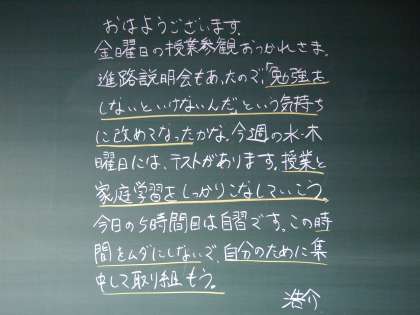 おはようございます。
金曜日の授業参観おつかれさま。
進路説明会もあったので、「勉強を
しないといけないんだ」という気持ち
に改めてなったかな。今週の水・木
曜日には、テストがあります。授業と
家庭学習をしっかりこなしていこう。
今日の5時間目は自習です。この時
間をムダにしないで、自分のために集
中して取り組もう。
浩介